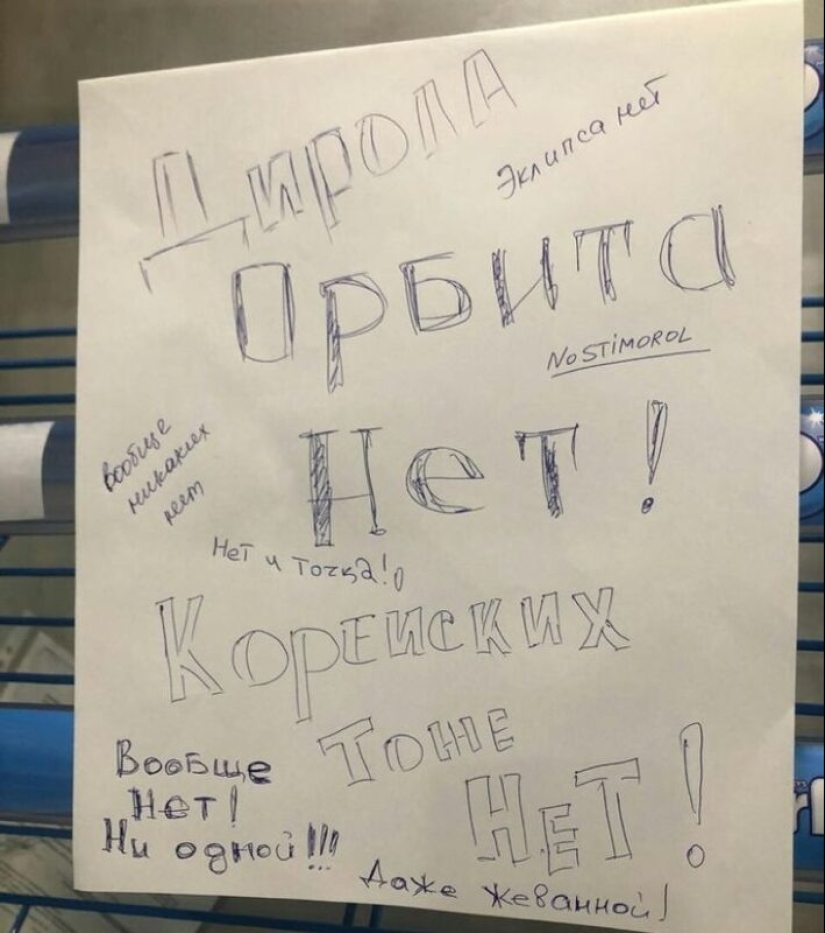 Дирола
Эклипса нет
Орбита
NO STIMOROL
Нет!
Вообще
никаких
нет
Нет и точка!
Корейских
Тоже
Нет!
Вообще
Нет!
Ни одной!!!
Даже жеванной!